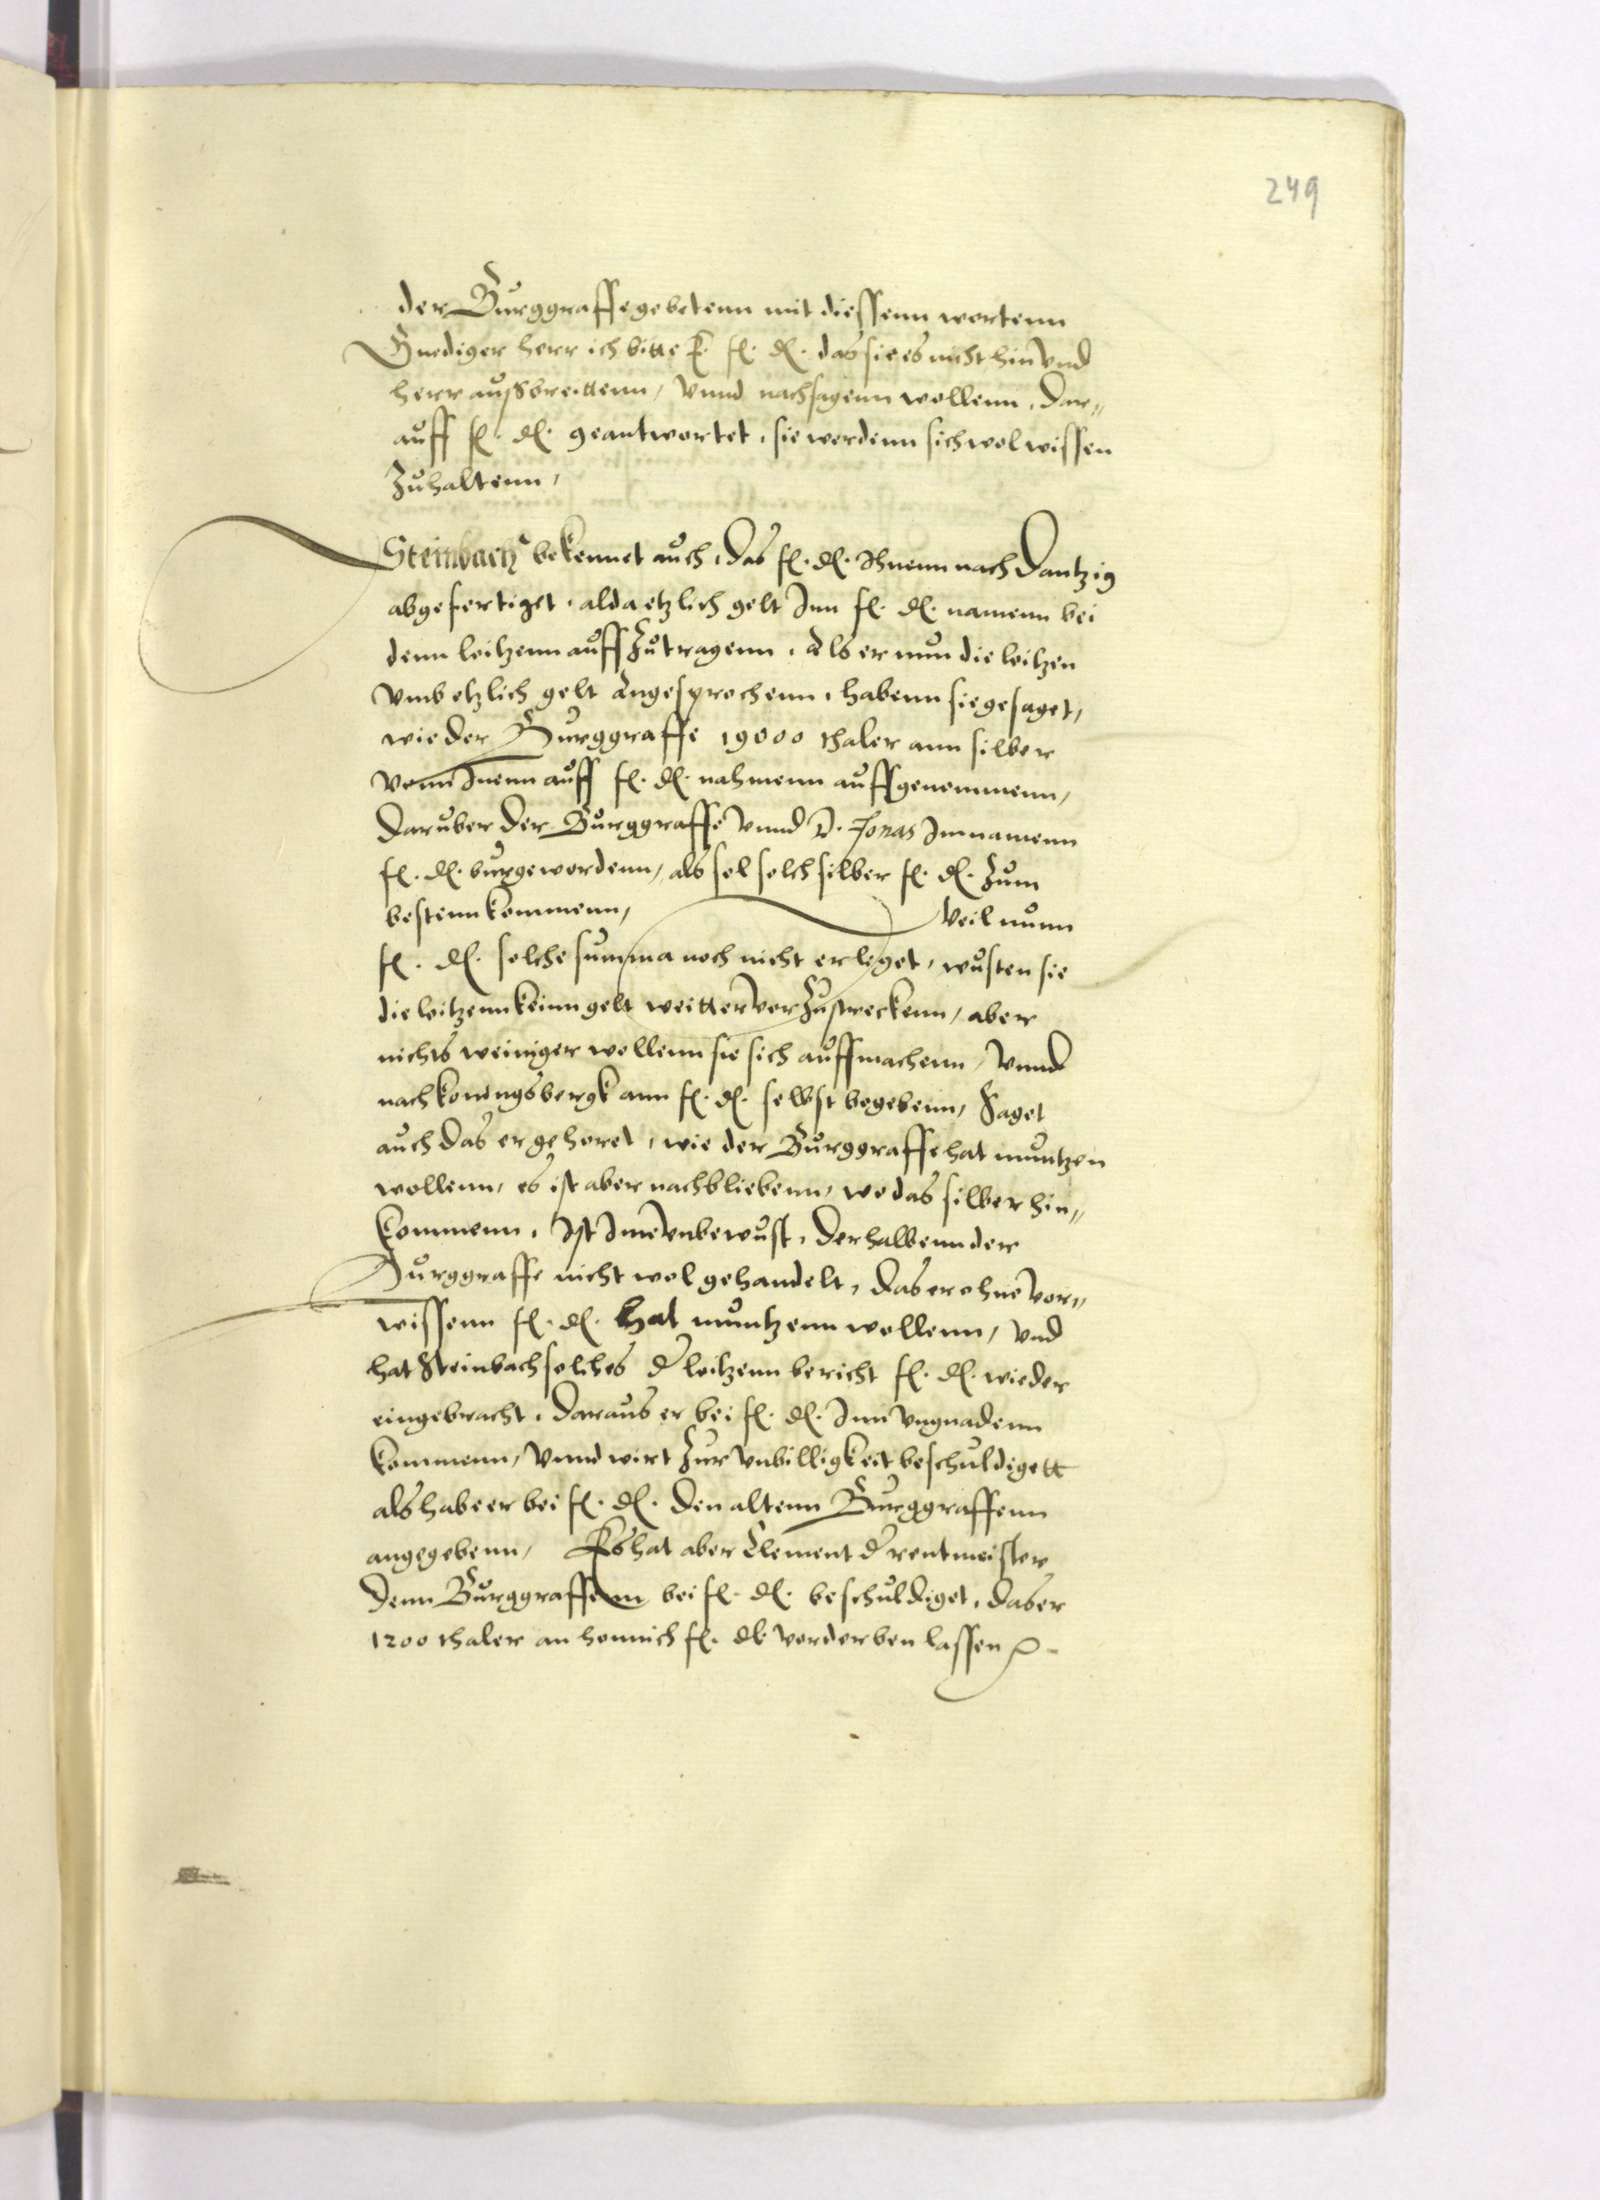 249
der Burggraffe gebetenn mit diessenn wortenn
Gnediger herr ich bitte E. fl. dl. das sie es nicht hin vnd
herr außbreittenn, vnnd nachsagenn wollenn, Dar„
auff fl. dl. geantwortet, sie werdenn sich wol wissen
Zuhaltenn,
Steinbach bekennet auch, das fl. dl. Ihnenn nach Dantzig
abgefertiget, alda etzlich gelt Inn fl. dl. namenn bei
denn loitzenn auff Zutragenn, Als er nun die loitzen
vmb etzlich gelt Angesprochenn, habenn sie gesaget,
wie der Burggraffe 19000 thaler ann silber
vonn Inenn auff fl. dl. nahmenn auffgenommenn,
daruber der Burggraffe vnnd D. Jonas Im namenn
fl. dl. burge wordenn, als sol solch silber fl. dl. Zum
bestenn kommenn, Weil nunn
fl. dl. solche summa noch nicht erleget, wusten sie
die loitzenn keinn gelt weitter vor Zustreckenn, aber
nichts weiniger wollenn sie sich auffmachenn, vnnd
nach konengsbergk ann fl. dl. selbst begebenn, Saget
auch das er gehoret, wie der Burggraffe hat muntzen
wollenn, es ist aber nachbliebenn, wo das silber hin„
kommenn, Ist Ime vnbewust, derhalbenn der
Burggraffe nicht wol gehandelt, das er ohne vor„
wissenn fl. dl. hat muntzenn wollenn, vnd
hat Steinbach solches d loitzenn bericht fl. dl. wieder
eingebracht, daraus er bei fl. dl. Inn vngnadenn
kommenn, vnnd wirt Zur vnbilligkeit beschuldigett
als habe er bei fl. dl. den altenn Burggraffenn
angegebenn, Es hat aber Clement d rentmeister
denn Burggraffenn bei fl. dl. beschuldiget, das er
1200 thaler an honnich fl. dl. vorderben lassen